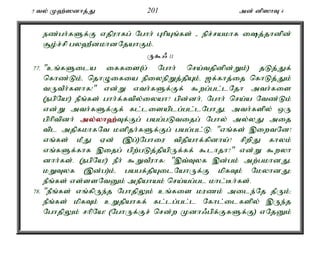 5 வல் முஹ்ஸனாத்து 201 அன் னிஸாவு 4
நண்பர்களுக்கு எதிராகப் போர் புரியுங்கள் - நிச்சயமாக ஷைத்தானின்
சூழ்ச்சி பலஹீனமானதேயாகும்.
ருகூஃ 11
77. "உங்களுடைய கைகளை(ப் போர் செய்வதினின்றும்) தடுத்துக்
கொண்டும், தொழுகையை நிலைநிறுத்தியும், ஜக்காத்தை கொடுத்தும்
வருவீர்களாக!" என்று எவர்களுக்குக் கூறப்பட்டதோ அவர்களை
(நபியே) நீங்கள் பார்க்கவில்லையா? பின்னர், போர் செய்ய வேண்டும்
என்று அவர்களுக்குக் கட்டளையிடப்பட்டபோது, அவர்களில் ஒரு
பிரிவினர் அல்லாஹ்வுக்குப் பயப்படுவதைப் போல் அல்லது அதை
விட அதிகமாகவே மனிதர்களுக்குப் பயப்பட்டு: "எங்கள் இறைவனே!
எங்கள் மீது ஏன் (இப்)போரை விதியாக்கினாய்? சிறிது காலம்
எங்களுக்காக இதைப் பிற்படுத்தியிருக்கக் கூடாதா?" என்று கூறலா
னார்கள். (நபியே) நீர் கூறுவீராக: "இவ்வுலக இன்பம் அற்பமானது,
மறுவுலக (இன்ப)ம், பயபக்தியுடையோருக்கு மிகவும் மேலானது;
நீங்கள் எள்ளளவேனும் அநியாயம் செய்யப்பட மாட்டீர்கள்.
78. "நீங்கள் எங்கிருந்த போதிலும் உங்களை மரணம் அடைந்தே தீரும்;
நீங்கள் மிகவும் உறுதியாகக் கட்டப்பட்ட கோட்டைகளில் இருந்த
போதிலும் சரியே! (போருக்குச் சென்ற முனாஃபிக்குகளுக்கு) ஏதேனும்